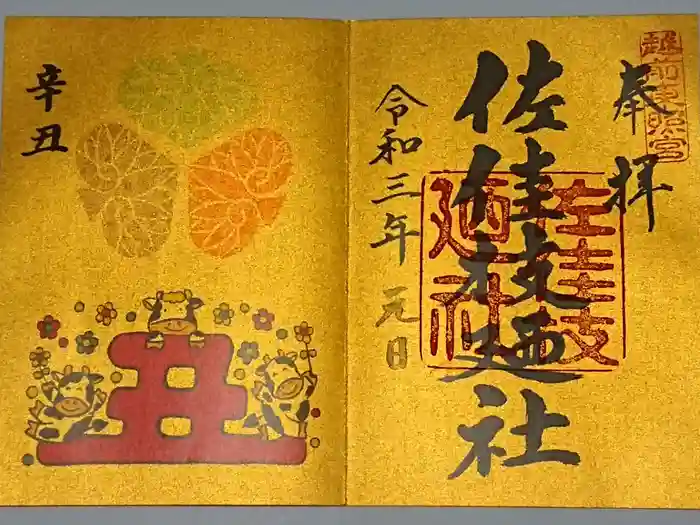 越前東照宮
奉拝
佐佳枝廼社
左佳枝
廼社
令和三年 元日
辛丑
丑